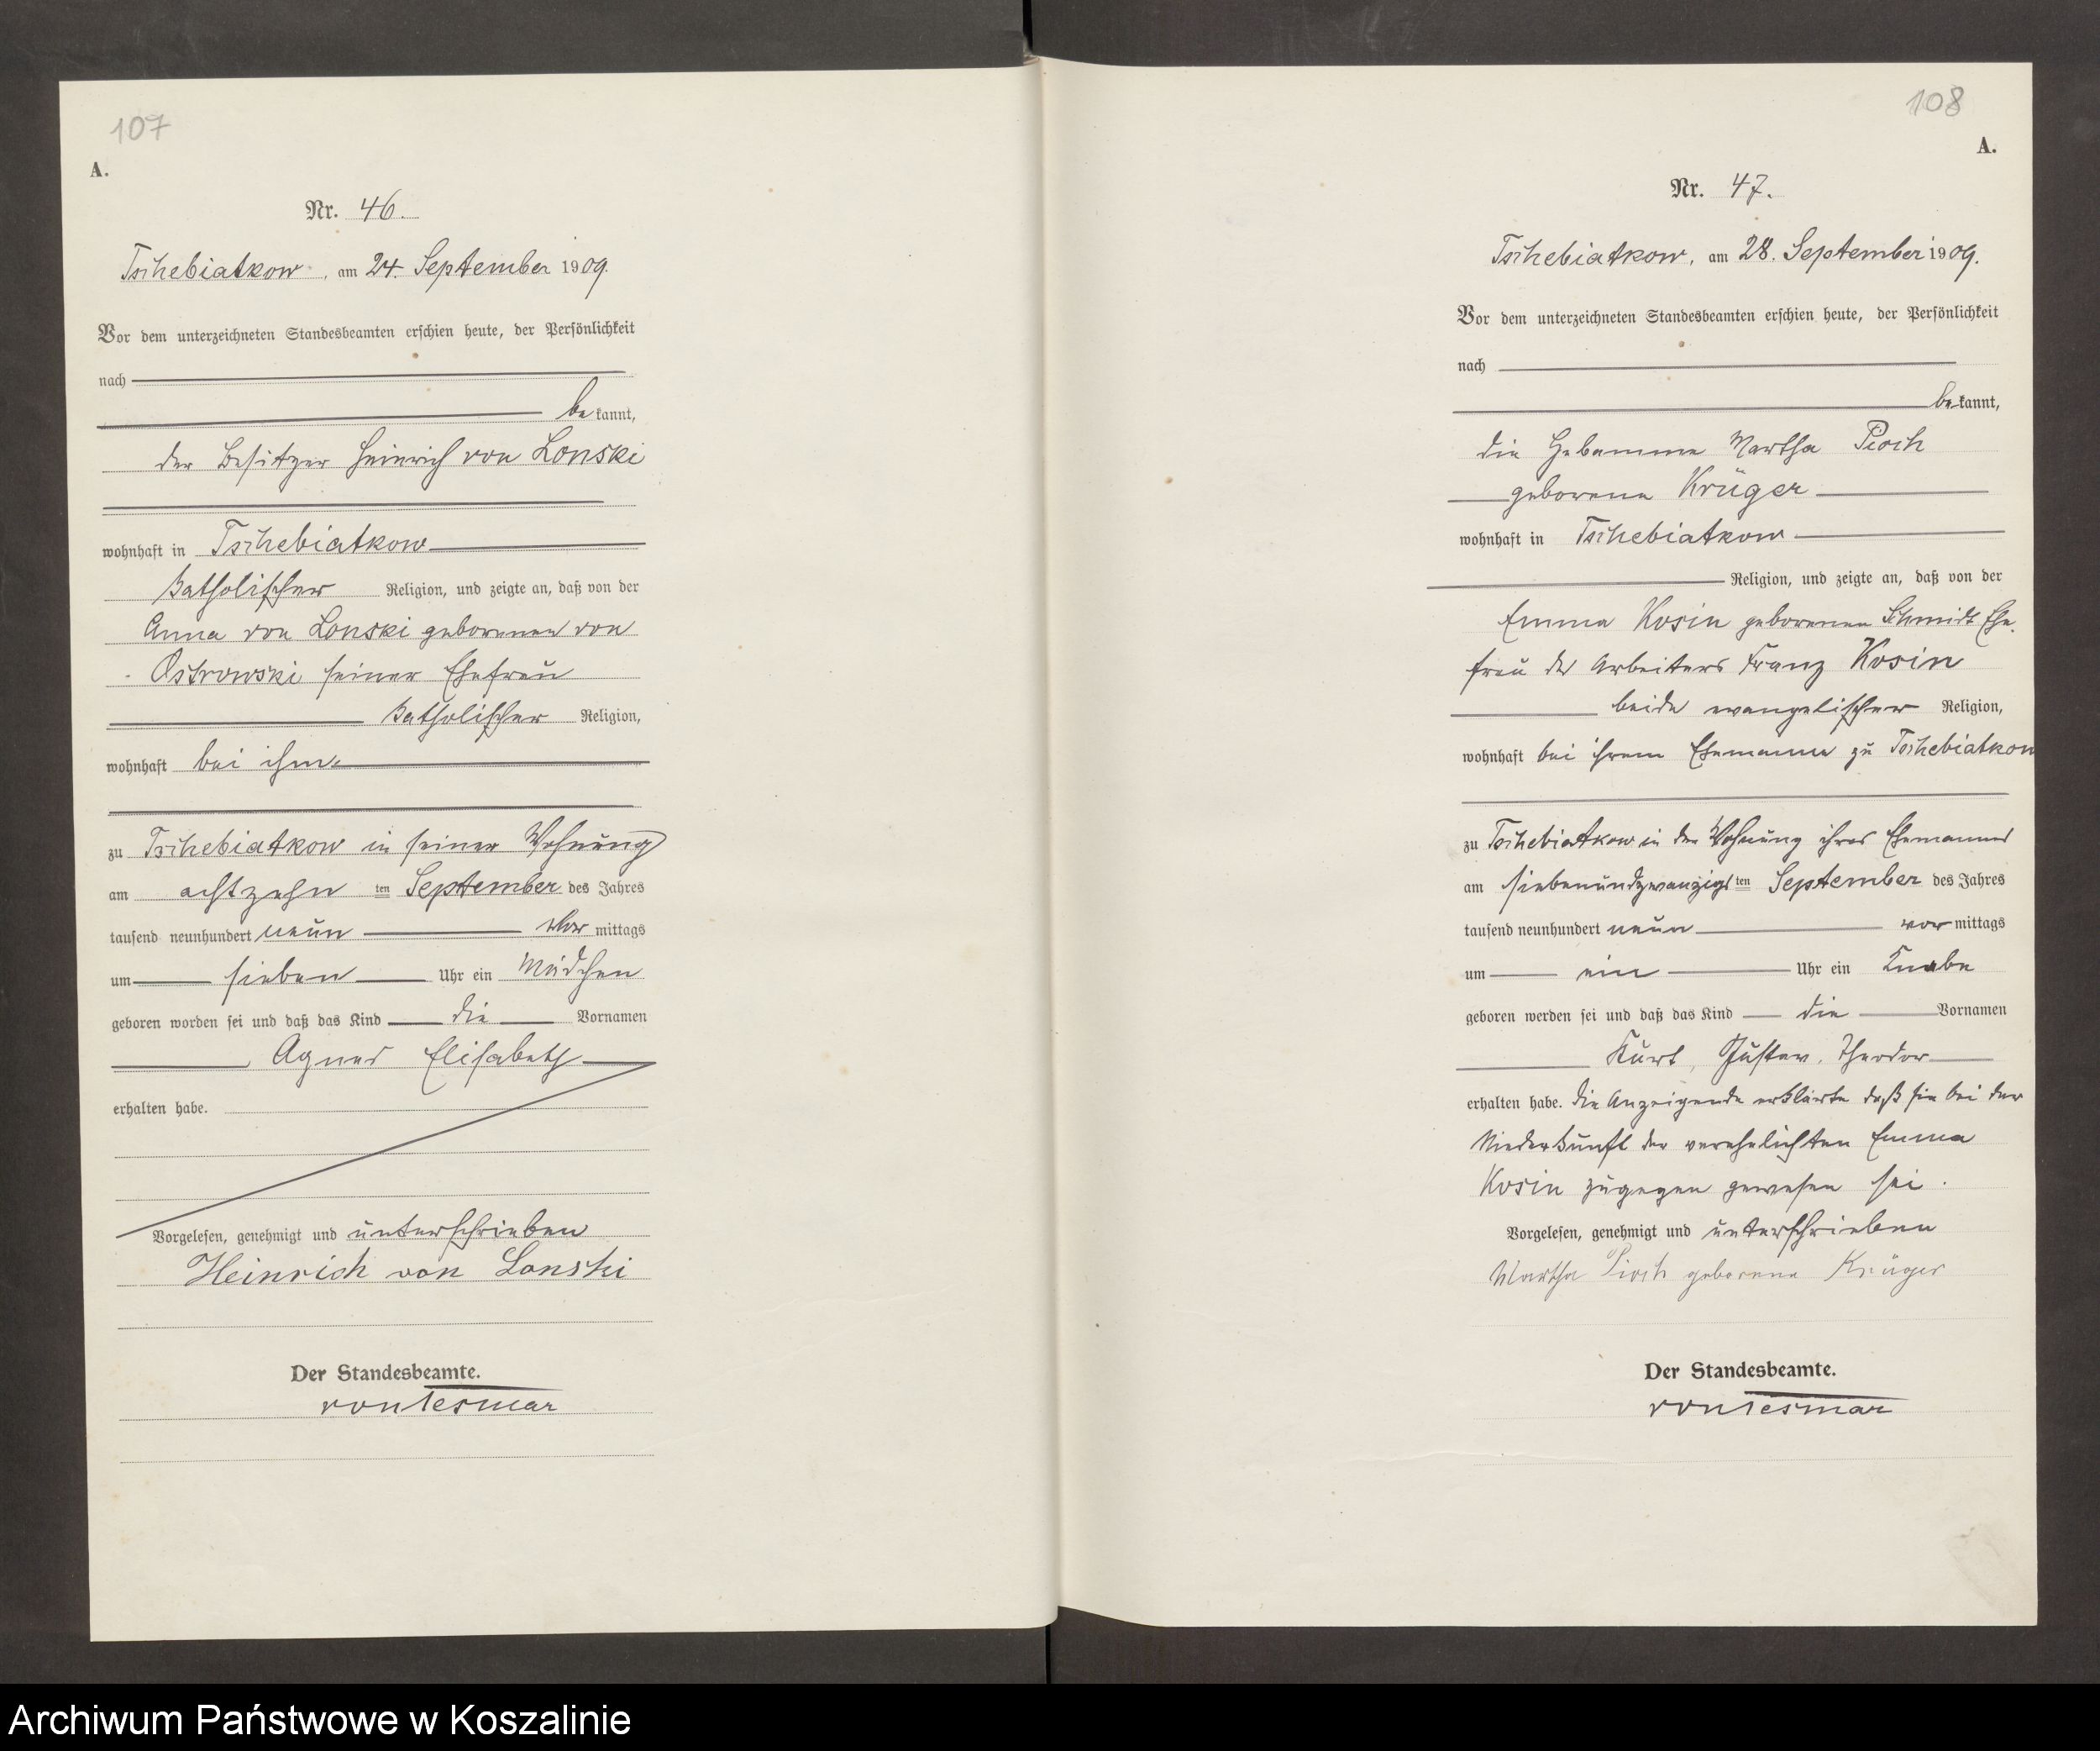 107
A.
Nr. 46.
Tschebiatkow, am 24. September 1909.
Vor dem unterzeichneten Standesbeamten erschien heute, der Persönlichkeit
nach
be kannt,
der Besitzer Heinrich von Lonski
wohnhaft in Tschebiatkow
katholischer Religion, und zeigte an, daß von der
Anna von Lonski geborenen von
Ostrowski seiner Ehefrau
katholischer Religion,
wohnhaft bei ihm
zu Tschebiatkow in seiner Wohnung
am achtzehn ten September des Jahres
tausend neunhundert neun mittags
um sieben Uhr ein Mädchen
geboren worden sei und daß das Kind die Vornamen
Agnes Elisabeth
erhalten habe.
Vorgelesen, genehmigt und unterschrieben
Heinrich von Lonski
Der Standesbeamte.
von Tesmar
108
A.
Nr. 47.
Tschebiatkow, am 28. September 1909.
Vor dem unterzeichneten Standesbeamten erschien heute, der Persönlichkeit
nach
be kannt,
die Hebamme Martha Pioch
geborene Krüger
wohnhaft in Tschebiatkow
Religion, und zeigte an, daß von der
Emma Kosin geborenen Schmidt Ehe-
frau des Arbeiters Franz Kosin
beide evangelischer Religion,
wohnhaft bei ihrem Ehemanne zu Tschebiatkow
zu Tschebiatkow in der Wohnung ihres Ehemannes
am siebenundzwanzigsten September des Jahres
tausend neunhundert neun vor mittags
um ein Uhr ein Knabe
geboren worden sei und daß das Kind die Vornamen
Kurt, Gustav, Theodor
erhalten habe. Die Anzeigende erklärte daß sie bei der
Niederkunft der verehelichten Emma
Kosin zugegen gewesen sei.
Vorgelesen, genehmigt und unterschrieben
Martha Pioch geborene Krüger
Der Standesbeamte.
von Tesmar
Archiwum Państwowe w Koszalinie